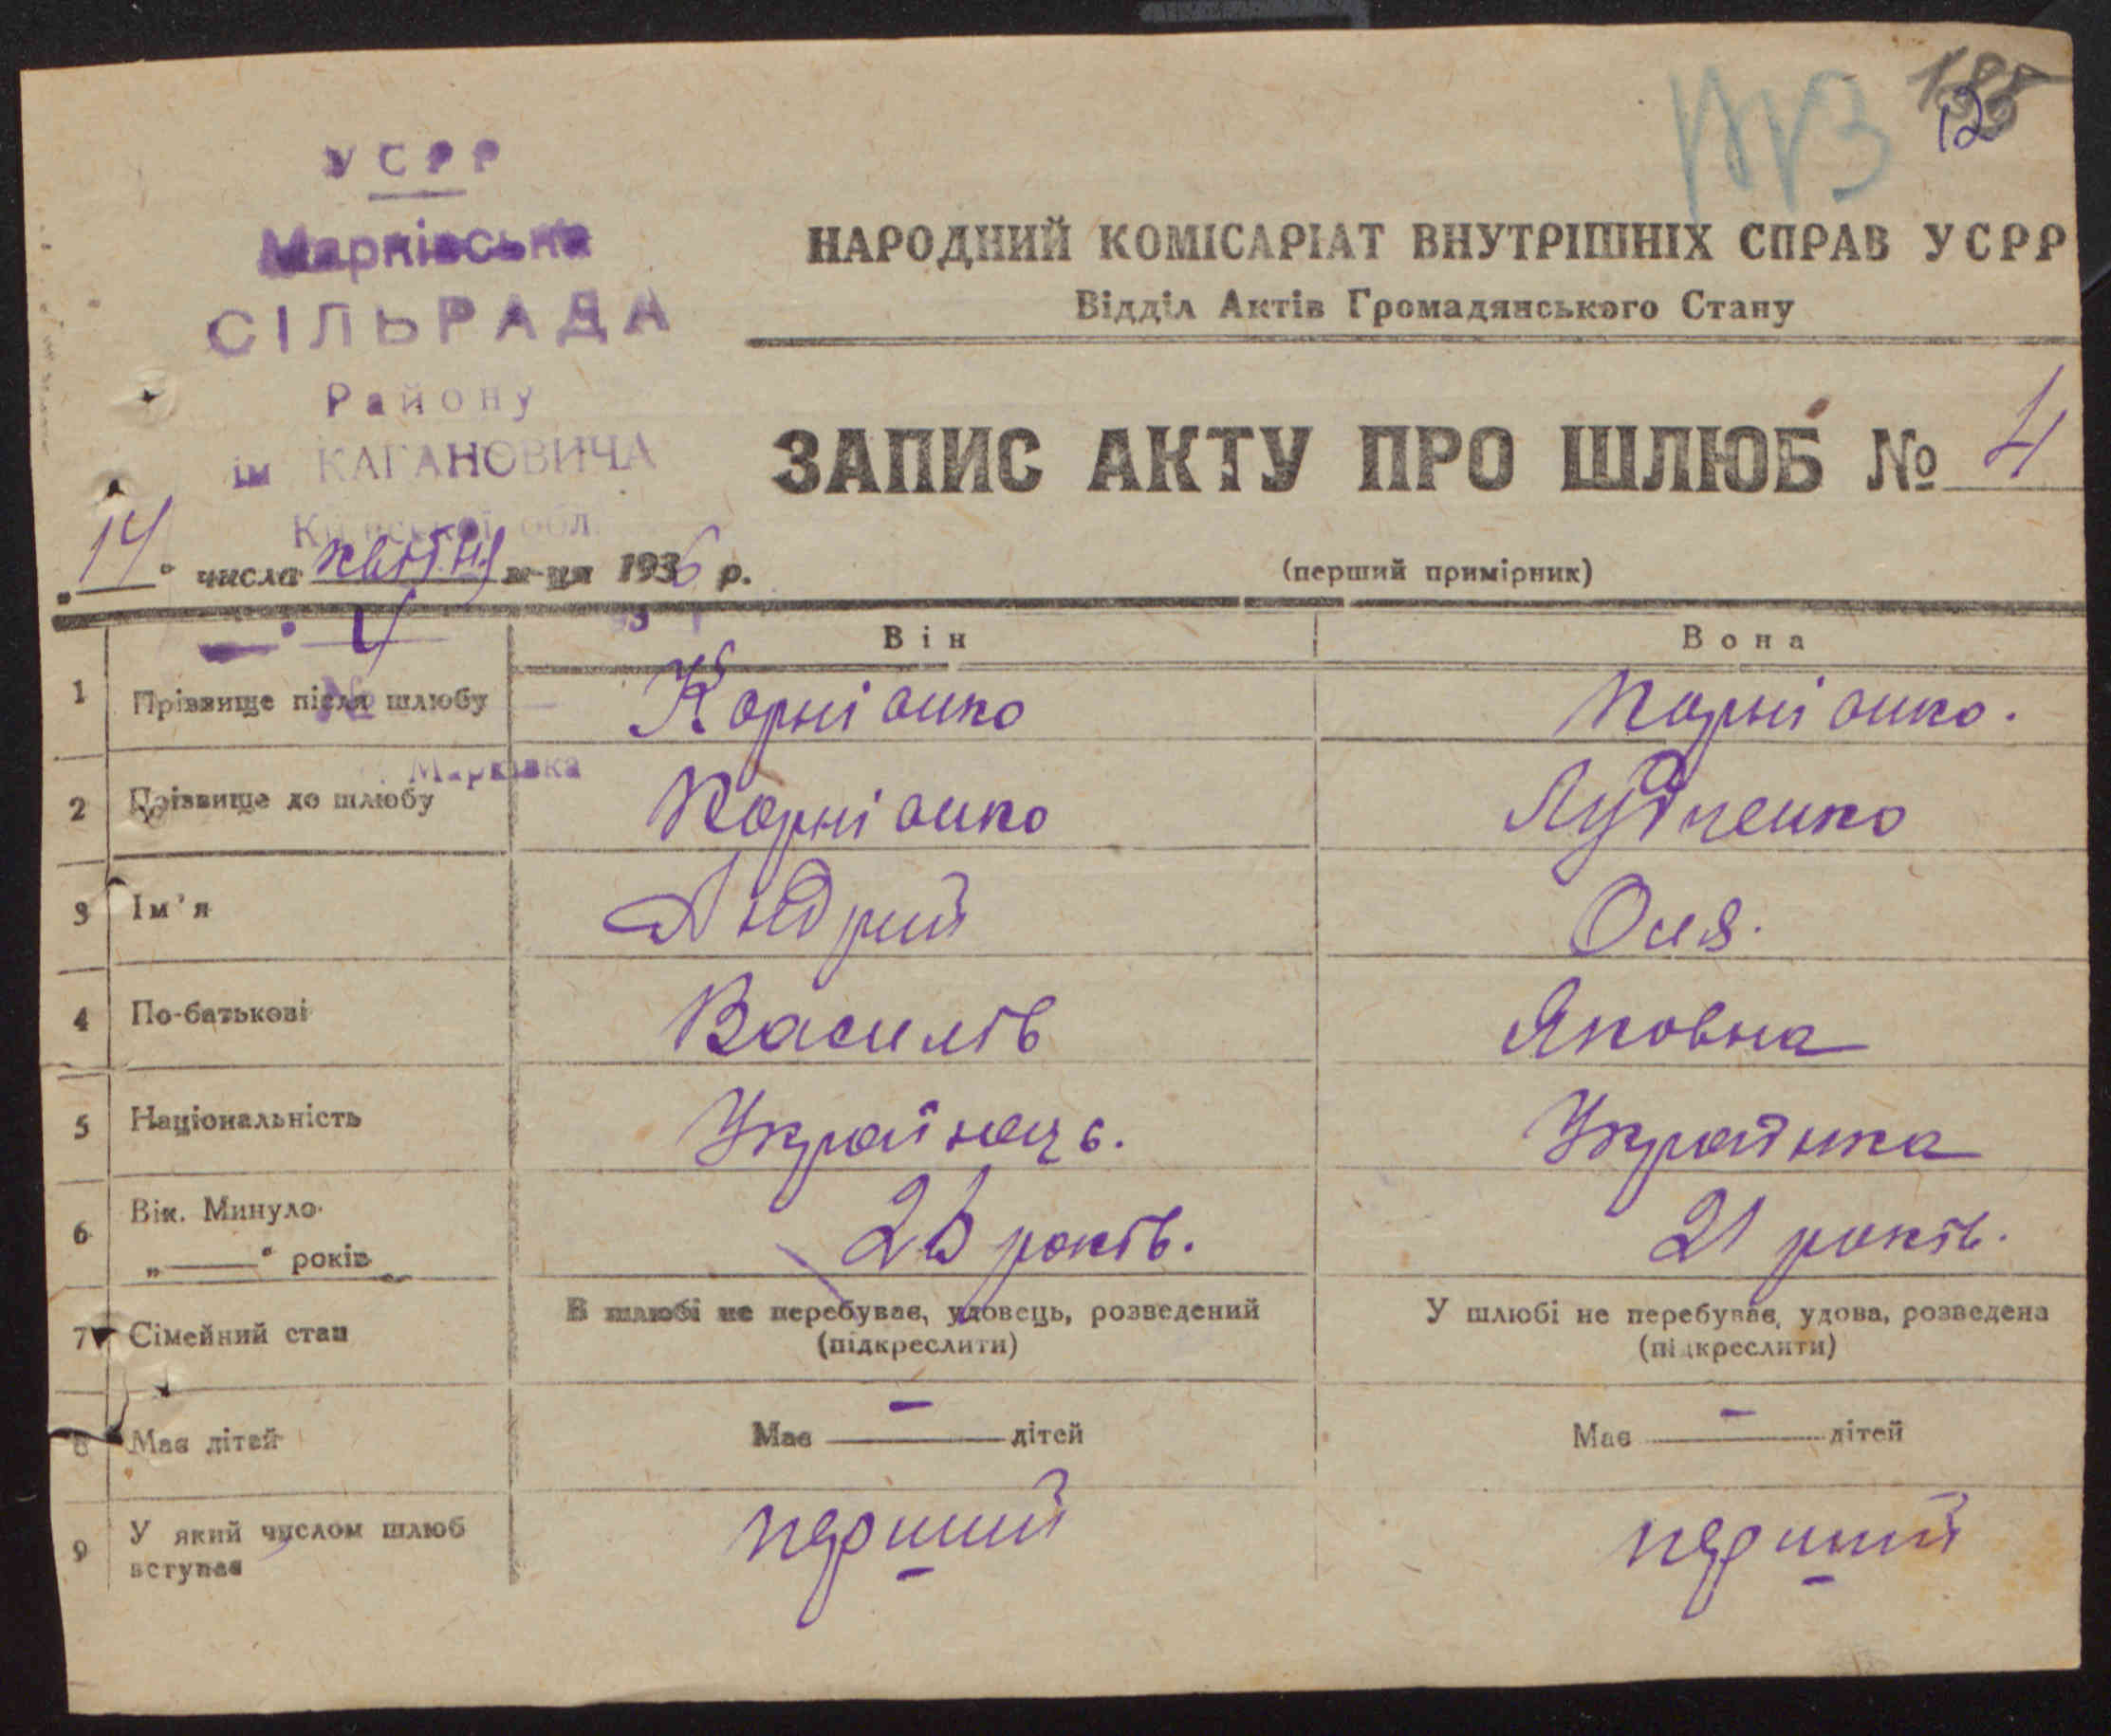 12
УСРР
Марківська
СІЛЬРАДА
Району
ім КАГАНОВИЧА
Київської обл.
НАРОДНИЙ КОМІСАРІАТ ВНУТРІШНІХ СПРАВ УСРР
Відділ Актів Громадянського Стану
ЗАПИС АКТУ ПРО ШЛЮБ № 4
„14“ числа квітня м-ця 1936 р.
(перший примірник)
Він Вона
1 Прізвище після шлюбу Корніонко Корніонко.
№
Марківка
2 Прізвище до шлюбу Корніонко Лудченко
3 Ім'я Андрий Оля.
4 По-батькові Василів Яковна
5 Національність Українець. Українка
6 Вік. Минуло
„——“ років 26 років. 21 років.
7 Сімейний стан В шлюбі не перебуває, удовець, розведений У шлюбі не перебуває, удова, розведена
(підкреслити) (підкреслити)
8 Має дітей Має — дітей Має — дітей
9 У який числом шлюб
вступає перший перший